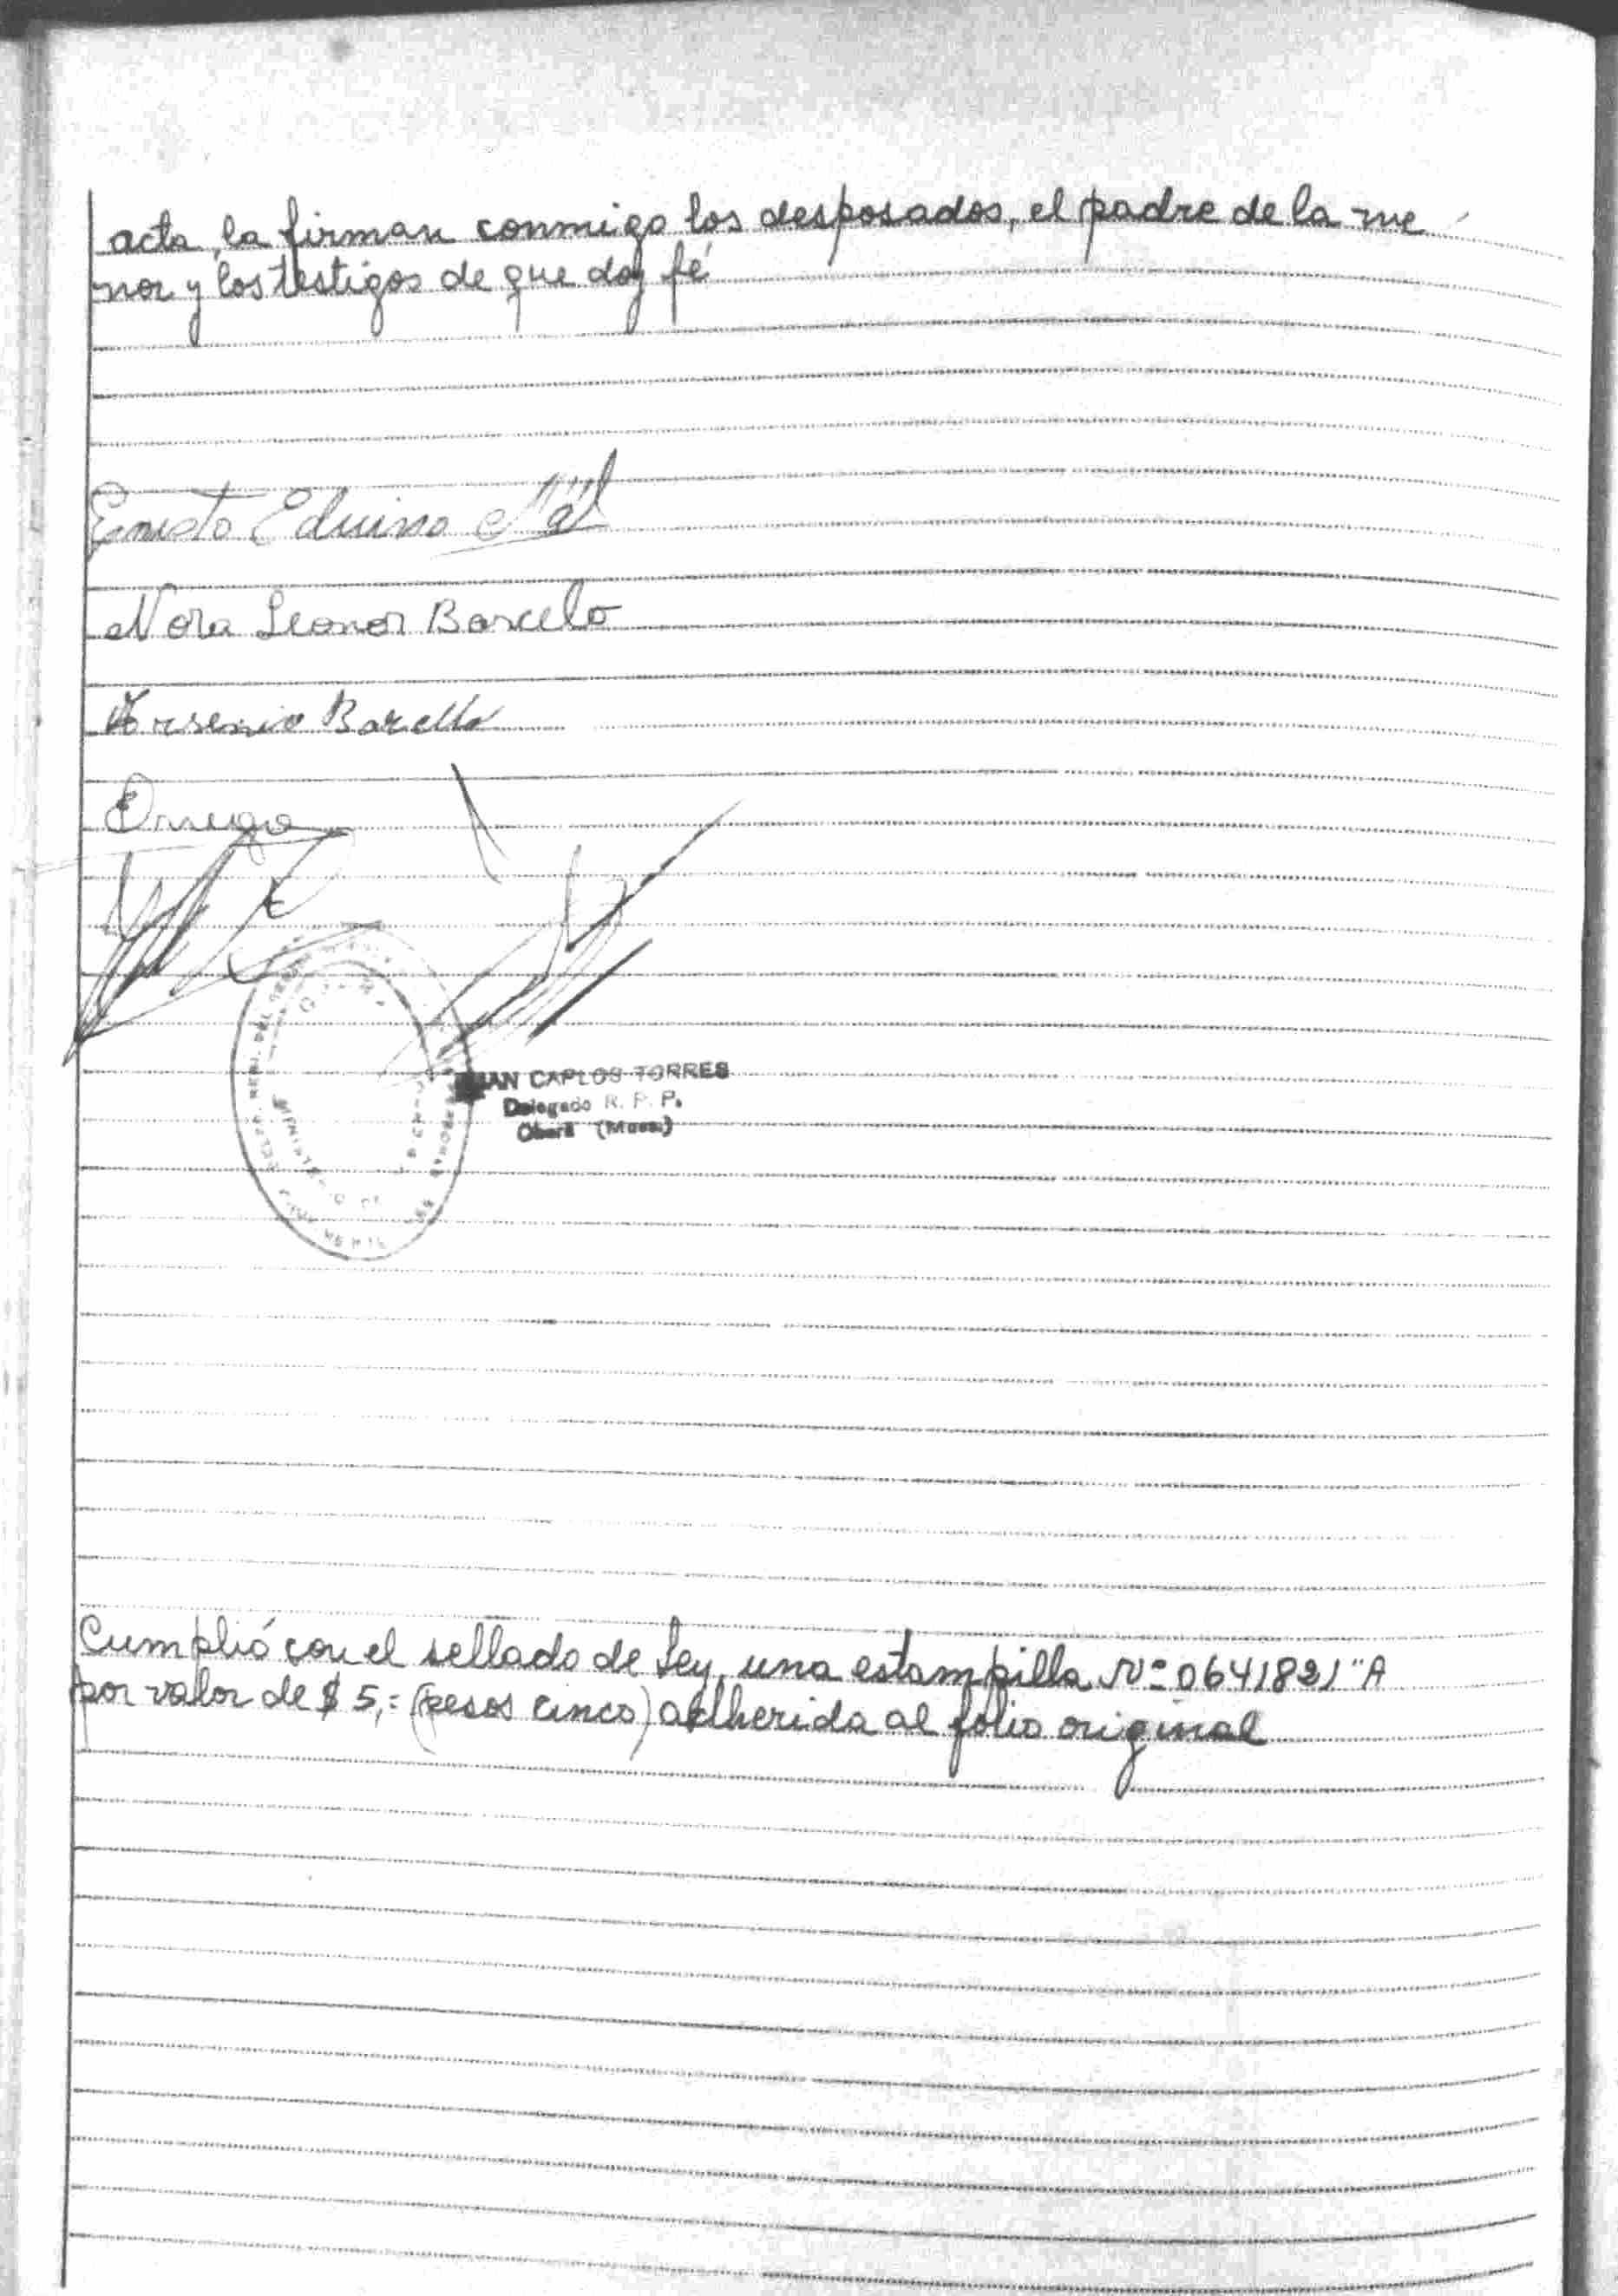 acta, la firman conmigo los desposados, el padre de la me
nor y los testigos de que doy fé
Ernesto Eduino
Nora Leonor Barcelo
Arsenio Barcelo
CARLOS TORRES
Delegado R. P. P.
Oberá (Mnes.)
Cumplió con el sellado de Ley, una estampilla Nº 0641821 "A
por valor de $ 5,= (pesos cinco) adherida al folio original